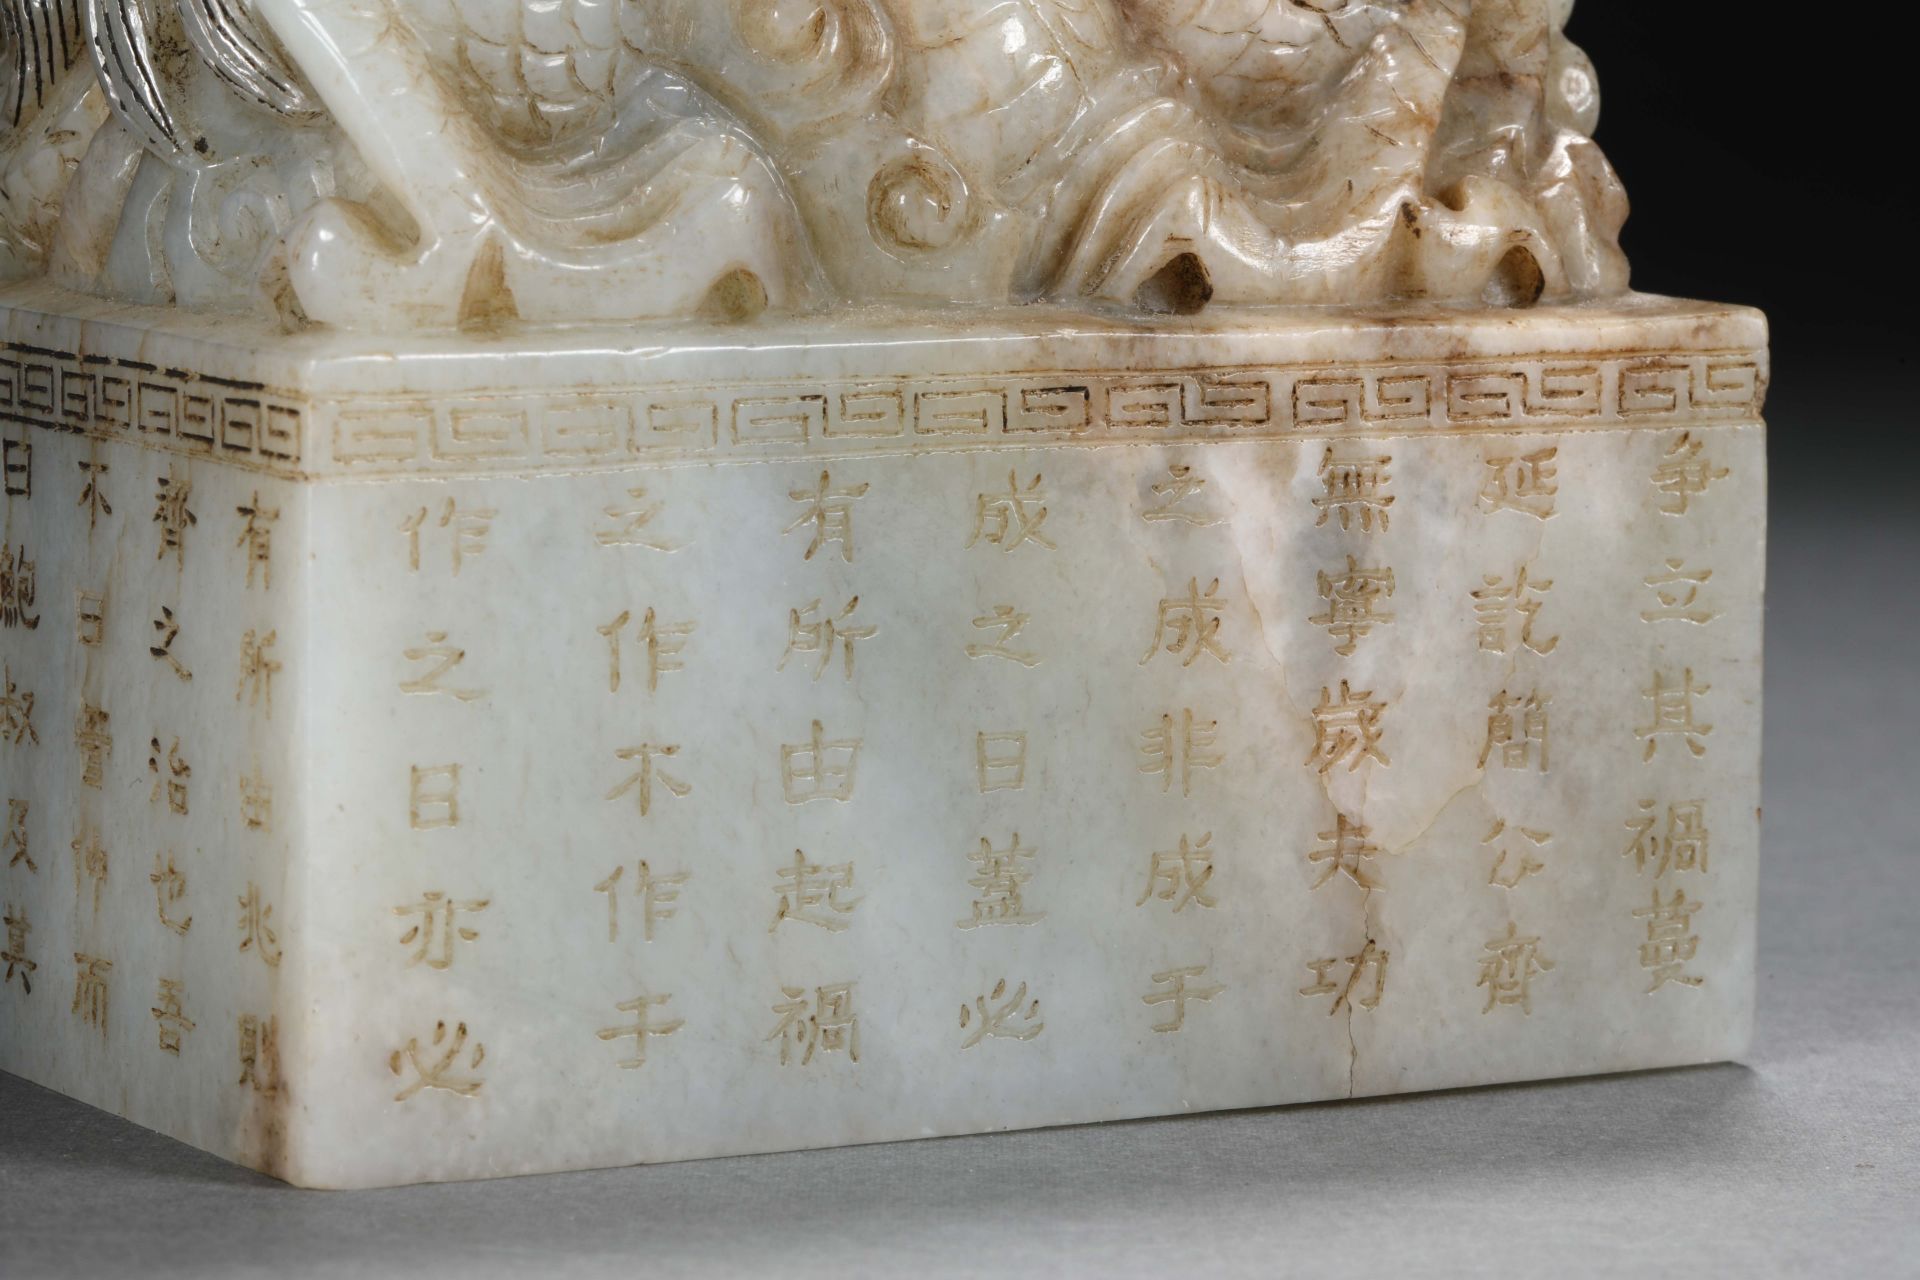 争立其禍蔓
延訖簡公齊
無寧歲夫功
之成非成于
成之日蓋必
有所由起禍
之作不作于
作之日亦必
有所由兆則
齊之治也吾
不曰管仲而
曰鮑叔及其